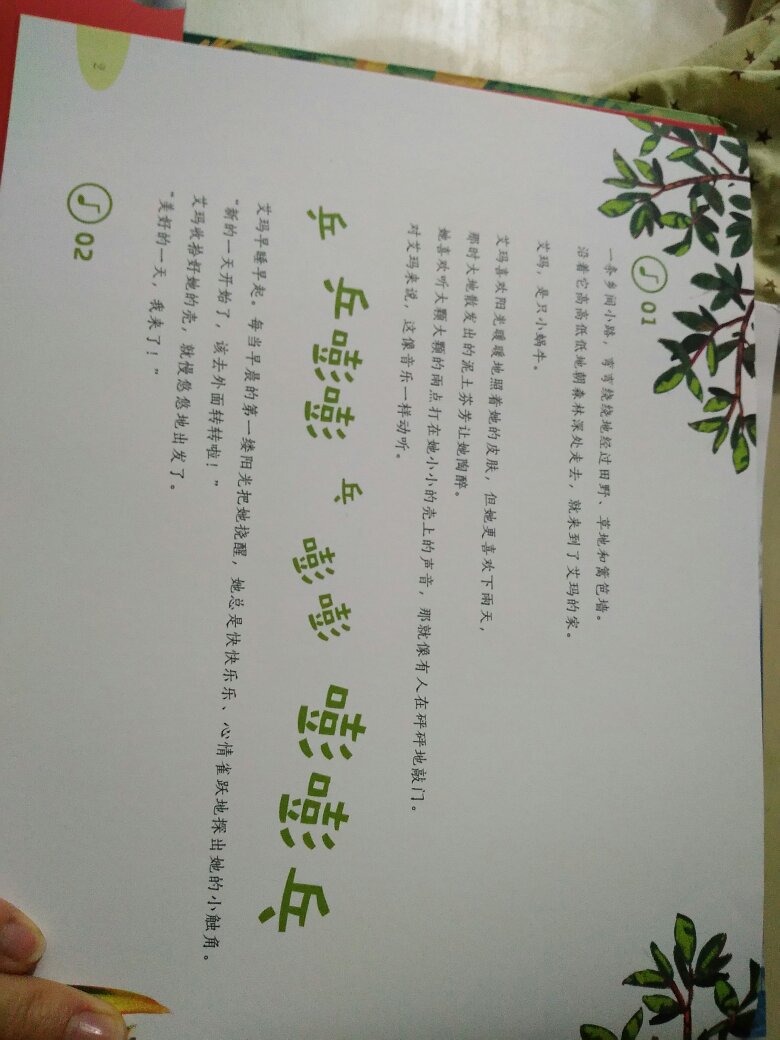 01
一条乡间小路，弯弯绕绕地经过田野、草地和篱笆墙。
沿着它高高低低地朝森林深处走去，就来到了艾玛的家。
艾玛，是只小蜗牛。
艾玛喜欢阳光暖暖地照着她的皮肤，但她更喜欢下雨天，
那时大地散发出的泥土芬芳让她陶醉。
她喜欢听大颗大颗的雨点打在她小小的壳上的声音，那就像有人在砰砰地敲门。
对艾玛来说，这像音乐一样动听。
乒 乒嘭嘭 乓 嘭嘭 嘭嘭乓
艾玛早睡早起。每当早晨的第一缕阳光把她挠醒，她总是快快乐乐、心情雀跃地探出她的小触角。
“新的一天开始了，该去外面转转啦！”
艾玛收拾好她的壳，就慢悠悠地出发了。
“美好的一天，我来了！”
02